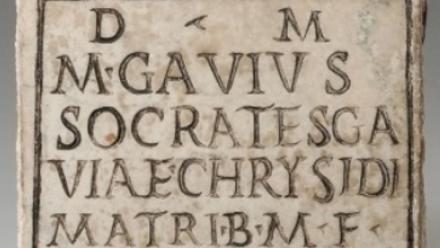 D M
M·GAVIVS
SOCRATESGA
VIAECHRYSIDI
MATRI·B·M·F·